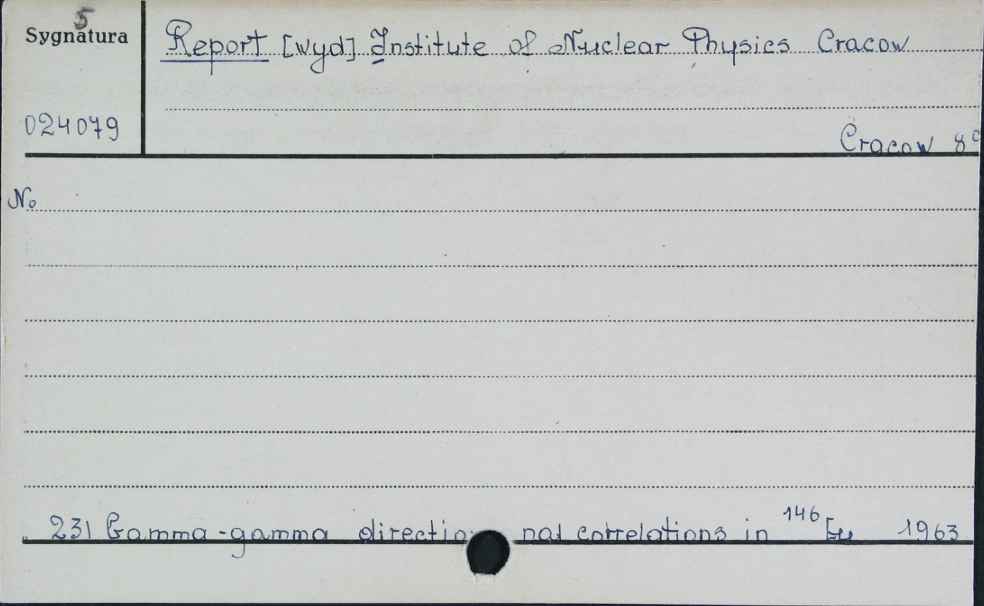 5
Sygnatura
Report [wyd] Institute of Nuclear Physics Cracow
024079
Cracow 8°
No
231 Gamma-gamma directio nal correlations in ¹⁴⁶Eu 1963